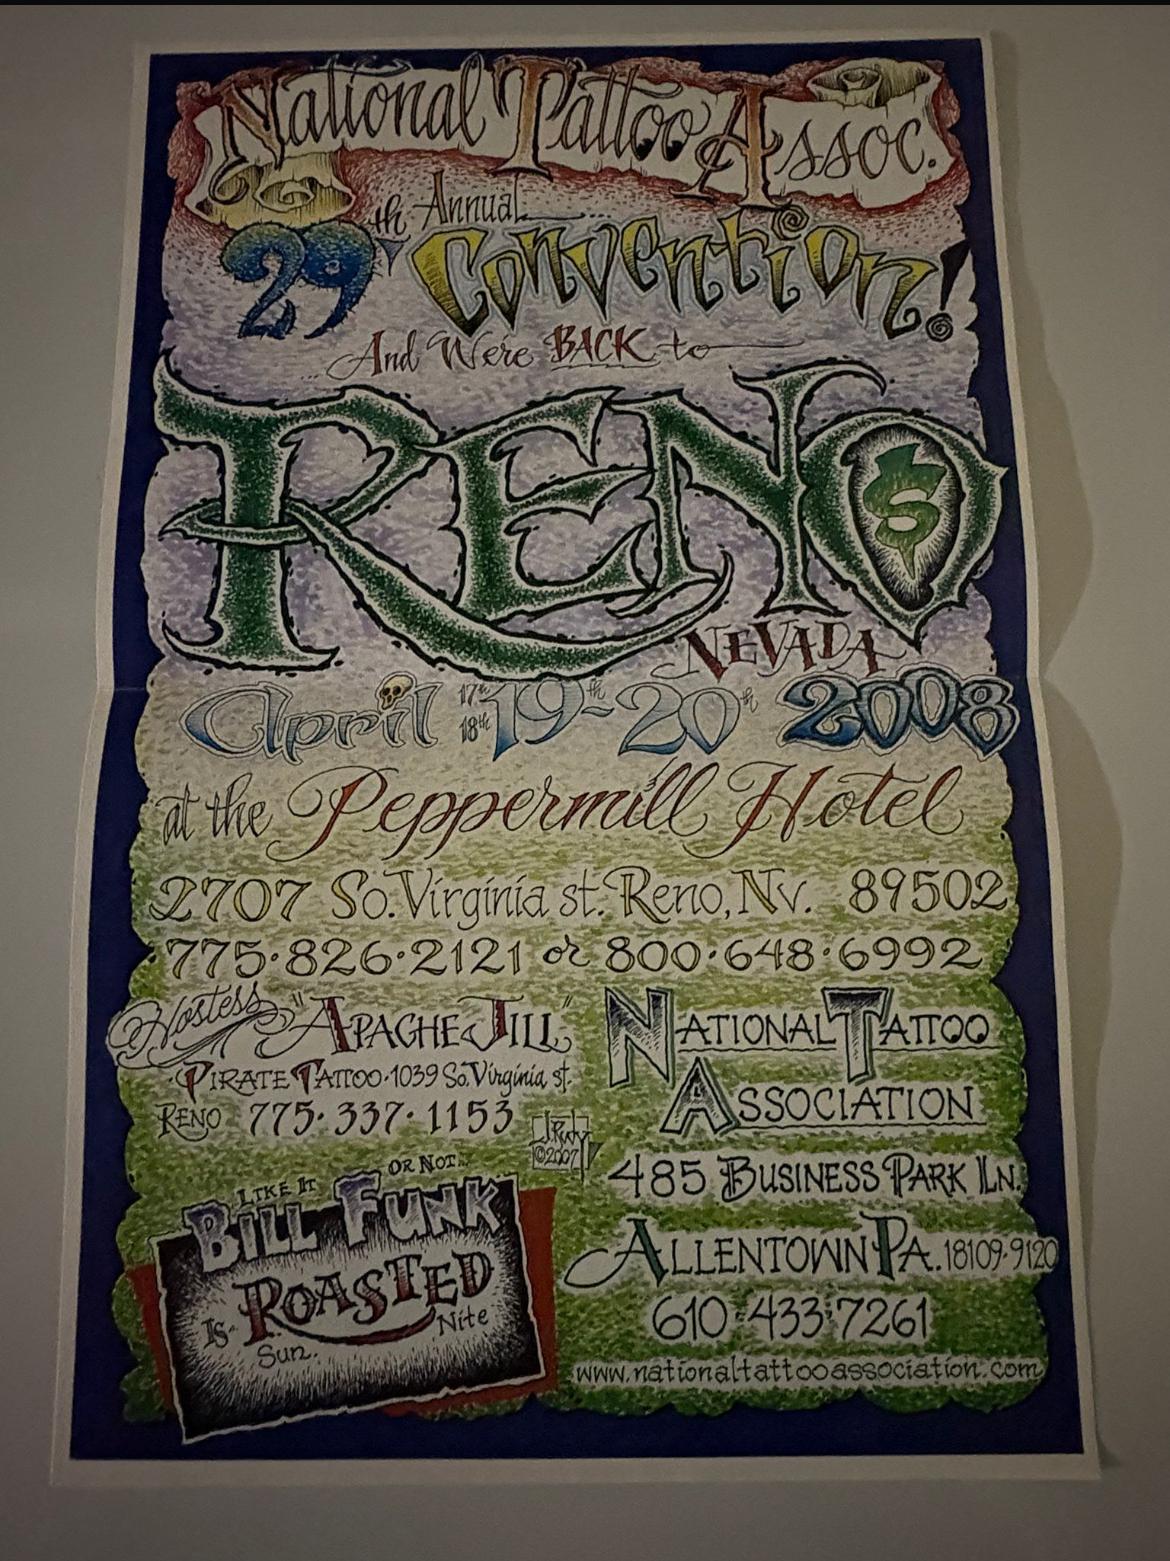 National Tattoo Assoc.
29th Annual
Convention!
And Were BACK to
RENO
$
NEVADA
April 17th 18th 19th-20th 2008
at the Peppermill Hotel
2707 So. Virginia st. Reno, Nv. 89502
775·826·2121 or 800·648·6992
Hostess "APACHE JILL"
PIRATE TATTOO·1039 So. Virginia st.
RENO 775·337·1153
©2007
NATIONAL TATTOO
ASSOCIATION
485 BUSINESS PARK LN.
ALLENTOWN PA. 18109·9120
610·433·7261
www.nationaltattooassociation.com
LIKE IT OR NOT...
BILL FUNK
Is ROASTED
Sun. Nite